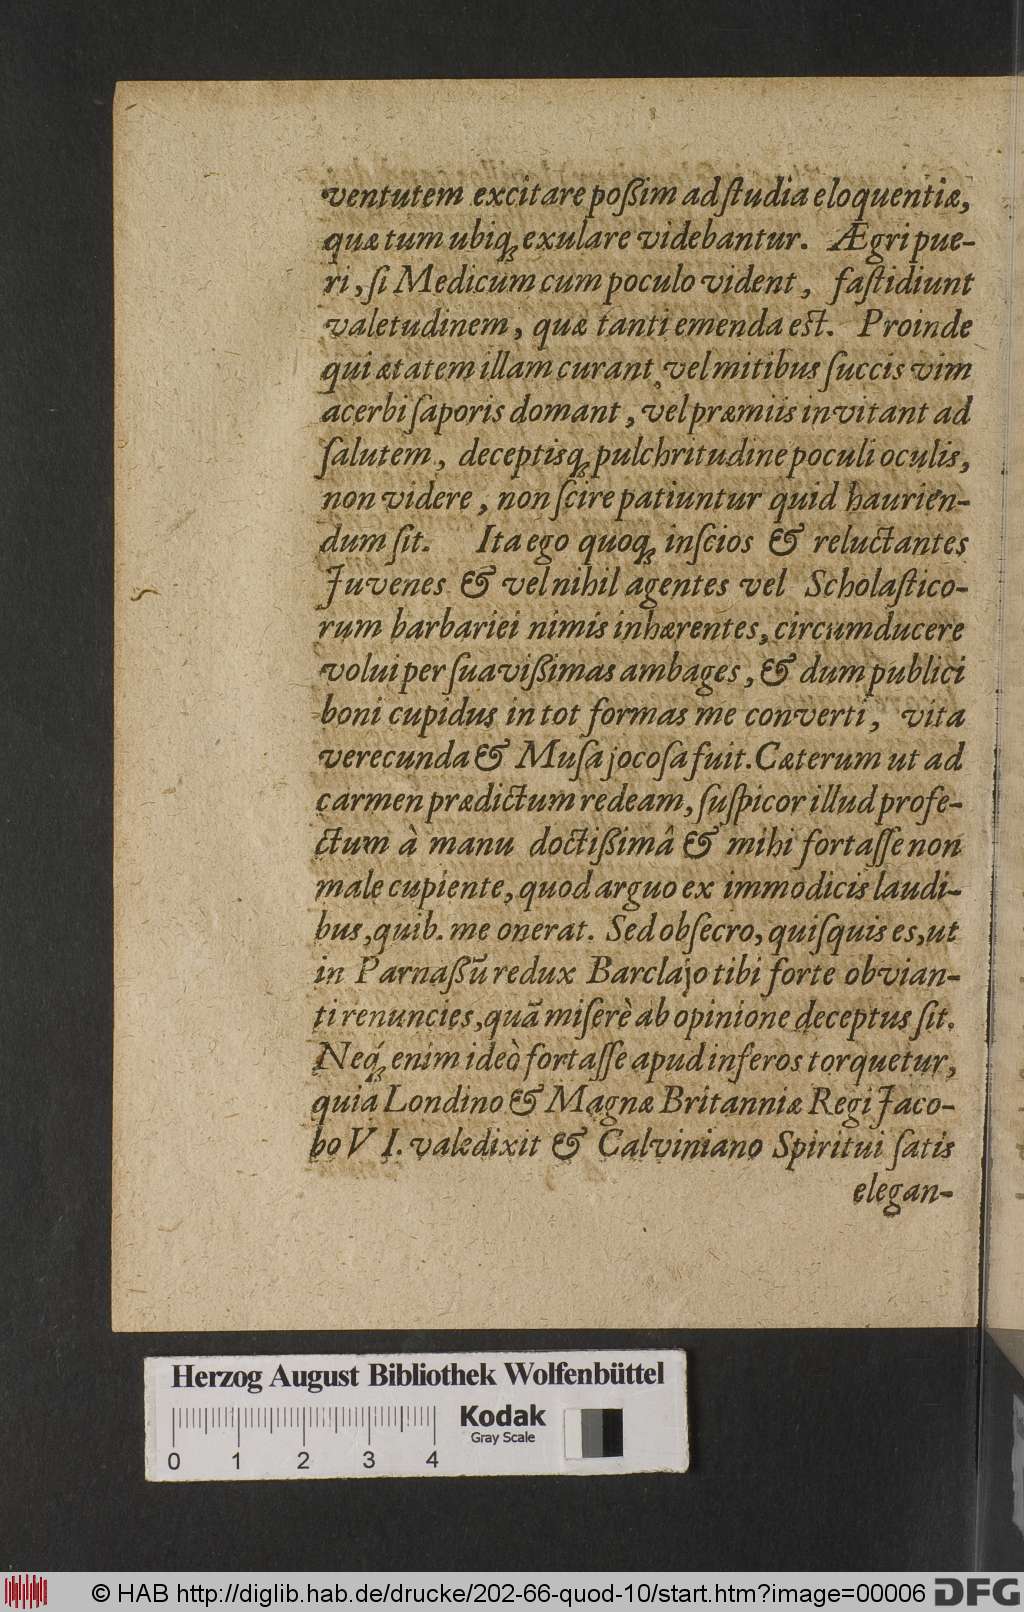 ventutem excitare poßim ad ſtudia eloquentiæ,
quæ tum ubiq́; exulare videbantur. Ægri pue-
ri, ſi Medicum cum poculo vident, faſtidiunt
valetudinem, quæ tanti emenda est. Proinde
qui ætatem illam curant, vel mitibus ſuccis vim
acerbi ſaporis domant, vel præmiis invitant ad
ſalutem, deceptisq́; pulchritudine poculi oculis,
non videre, non ſcire patiuntur quid haurien-
dum ſit. Ita ego quoq́; inſcios & reluctantes
Juvenes & vel nihil agentes vel Scholaſtico-
rum barbariei nimis inhærentes, circumducere
volui per ſuavißimas ambages, & dum publici
boni cupidus in tot formas me converti, vita
verecunda & Muſa jocoſa fuit. Cæterum ut ad
carmen prædictum redeam, ſuſpicor illud profe-
ctum à manu doctißimâ & mihi fortaſſe non
male cupiente, quod arguo ex immodicis laudi-
bus, quib. me onerat. Sed obſecro, quiſquis es, ut
in Parnaßũ redux Barclajo tibi forte obvian-
ti renuncies, quã miſerè ab opinione deceptus ſit.
Neq́; enim ideò fortaſſe apud inferos torquetur,
quia Londino & Magnæ Britanniæ Regi Jaco-
bo VI. valedixit & Calviniano Spiritui ſatis
elegan-
Herzog August Bibliothek Wolfenbüttel
Kodak
Gray Scale
0 1 2 3 4
© HAB http://diglib.hab.de/drucke/202-66-quod-10/start.htm?image=00006 DFG